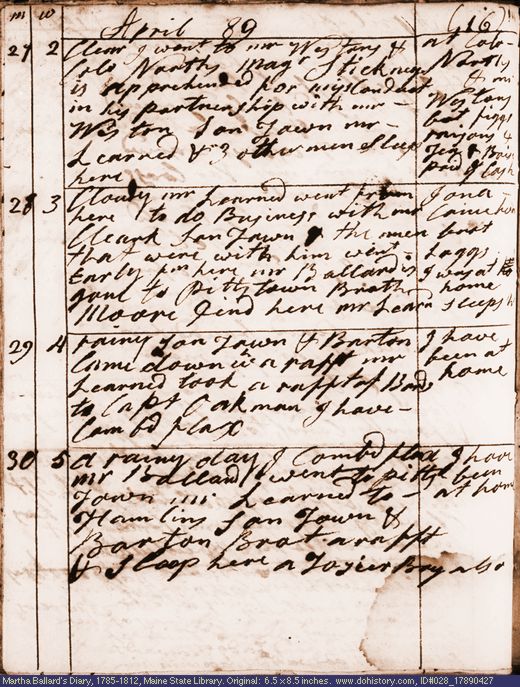 m w April 89 (116)
27 2 Clear I went to mr Westons & at Colo
Colo Norths magr Stickney Norths
is apprehended for misconduct & mr
in his partnership with mr - Westons
Weston Jon Town mr - bot figgs
Learned & 3 other men sleep raisons
here Tea &
paid Cash
28 3 Cloudy mr Learned went from Jona
here to do Business with mr Came home
Cleark Jon Town & the men bout
that were with him went Loggs
Early from here mr Ballard is I was at
gone to Pittstown Brother home
Moore Jind here mr Learn sleeps
29 4 rainy Jon Town & Barton I have
Came down in a rafft mr been at
Learned took a rafft of Bards home
to Capt Oakman I have -
Comb'd flax
30 5 a rainy day I Combd flax I have
mr Ballard went to pitts been
Town mr Learned to - at home
Hamlins Jon Town &
Barton Brot a rafft
& sleep here a Tozier Boy also
Martha Ballard's Diary, 1785-1812, Maine State Library. Original: 6.5 x 8.5 inches. www.dohistory.com, ID#028_17890427